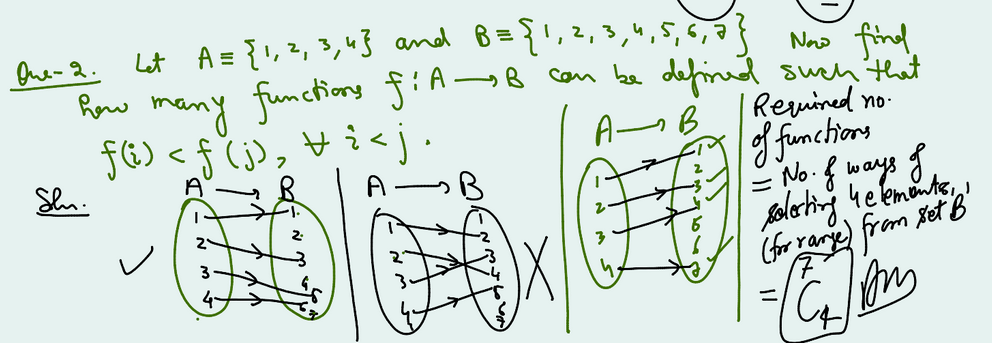 Que-2. Let A ≡ {1, 2, 3, 4} and B ≡ {1, 2, 3, 4, 5, 6, 7} Now find
how many functions f : A → B can be defined such that
f(i) < f(j), ∀ i < j.
Soln.
A → B
1 1
2 2
3 3
4 4
5
6
7
A → B
1 1
2 2
3 3
4 4
5
6
7
A → B
1 1
2 2
3 3
4 4
5
6
7
Required no.
of functions
= No. of ways of
selecting 4 elements,
(for range) from set B
= ⁷C₄ Ans